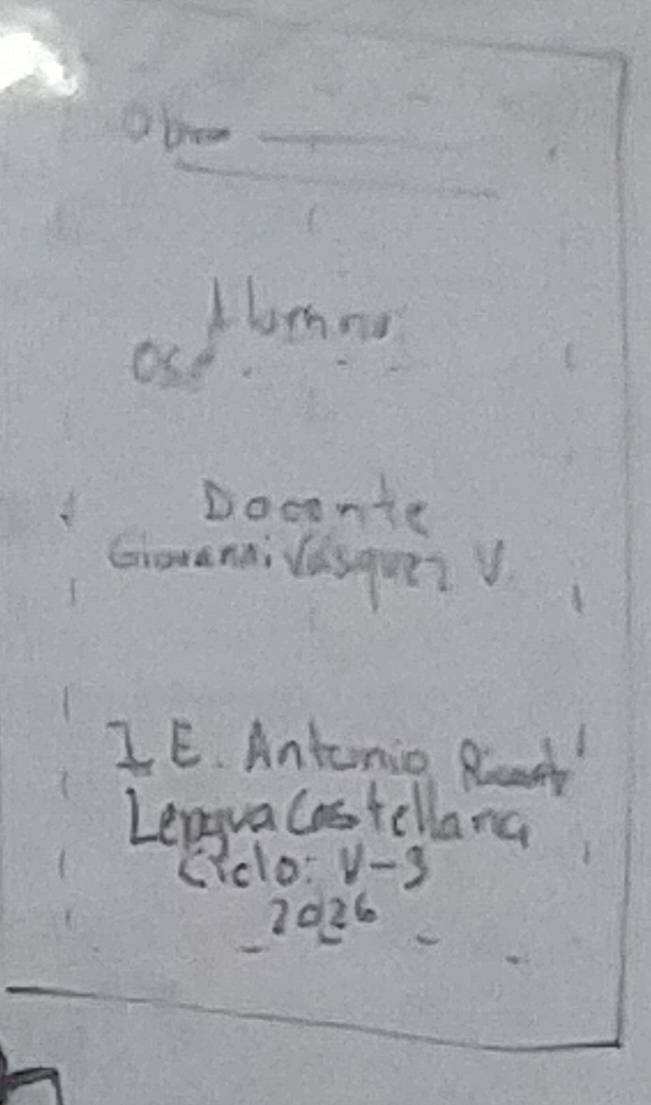 Obra
Alumno
Docente
Giovanni Vásquez V.
I E. Antonio Ricaurte
Lengua Castellana
Ciclo: V-3
2026